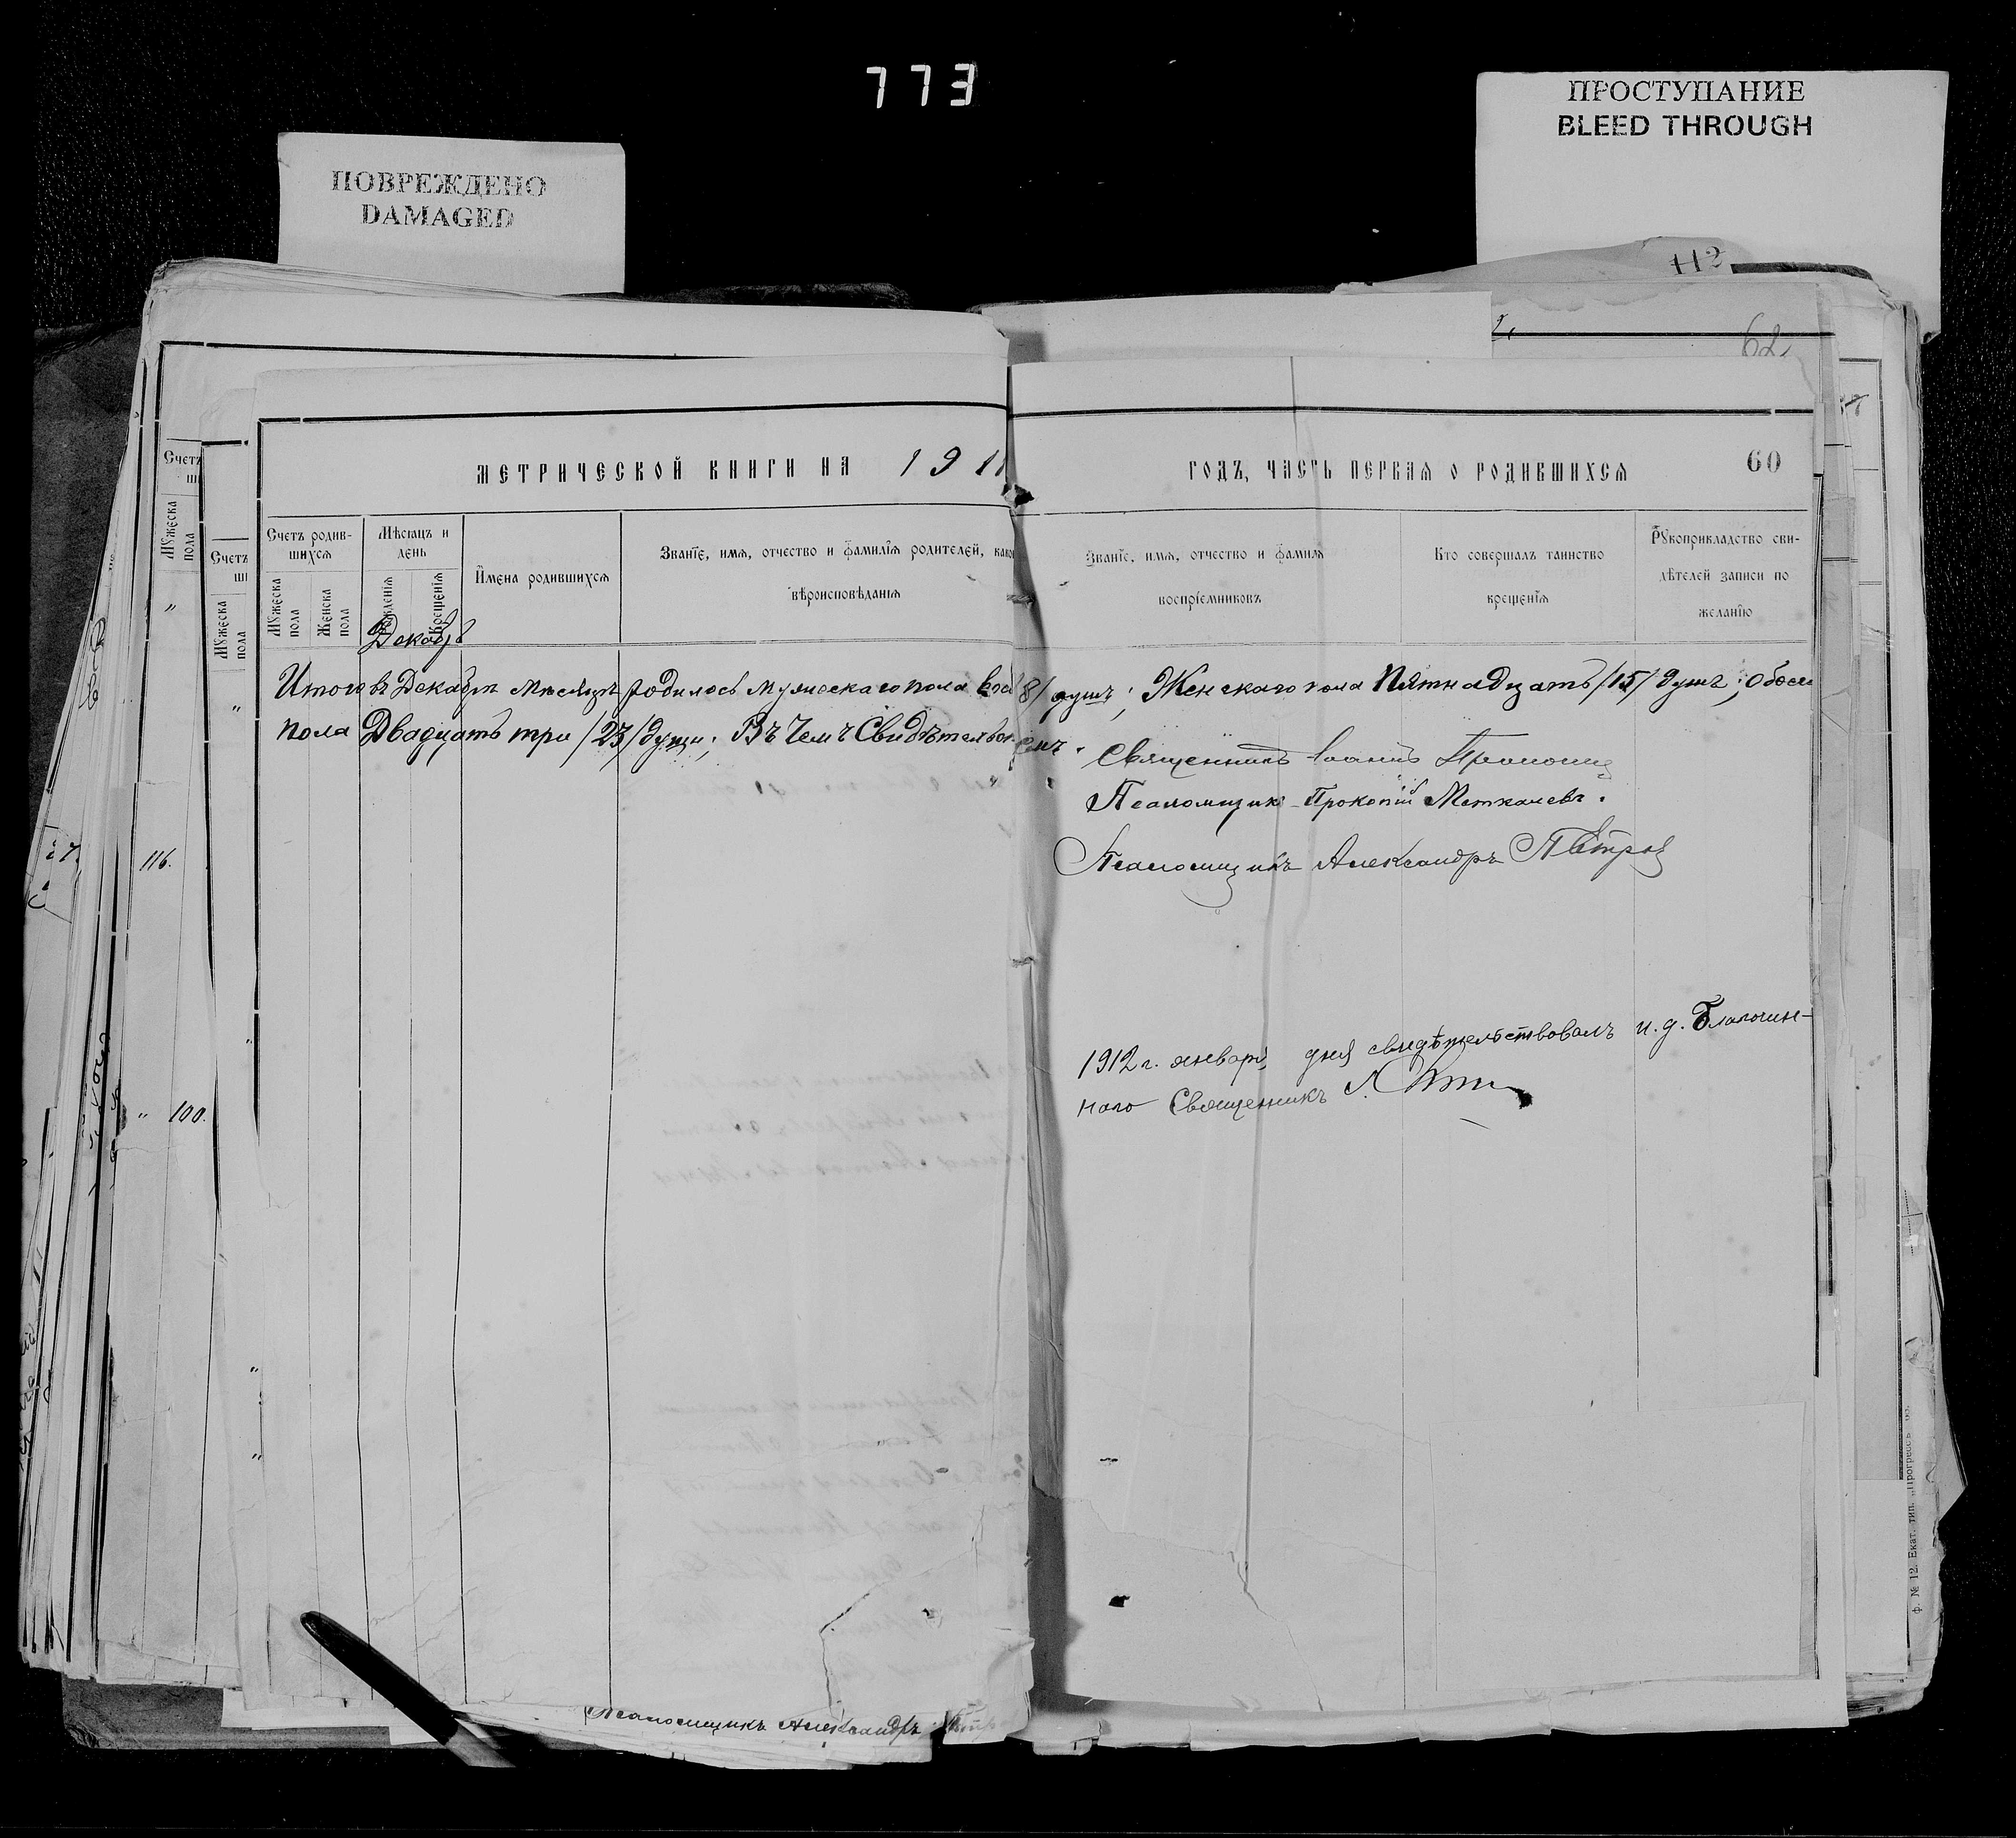 773
ПОВРЕЖДЕНО
DAMAGED
ПРОСТУПАНИЕ
BLEED THROUGH
112
62
МЕТРИЧЕСКОЙ КНИГИ НА 1911
ГОДЪ, ЧАСТЬ ПЕРВАЯ О РОДИВШИХСЯ
60
Счетъ родив-
шихся
Мужеска пола
Женска пола
Мѣсяцъ и
день
Рожденія
Крещенія
Имена родившихся
Званіе, имя, отчество и фамилія родителей, како
вѣроисповѣданія
Званіе, имя, отчество и фамилія
воспріемниковъ
Кто совершалъ таинство
крещенія
Рукоприкладство сви-
дѣтелей записи по
желанію
Счетъ
ши
Мужеска пола
Счетъ
ши
Мужеска пола
Декабрь
Итого въ Декабрѣ мѣсяцѣ родилось мужескаго пола 8/ душъ; Женскаго пола Пятнадцать /15/ душъ; обоего
пола Двадцать три /23/ души; Въ чемъ Свидѣтельствуемъ.
Священникъ Іоаннъ
Псаломщикъ Прокопій Меткалевъ.
Псаломщикъ Александръ Пѣтровъ
1912 г. января, дня свидѣтельствовалъ и. д. Благочин-
наго Священникъ
116.
100.
Псаломщикъ Александръ
ф. № 12. Екат. тип. „Прогрессъ"